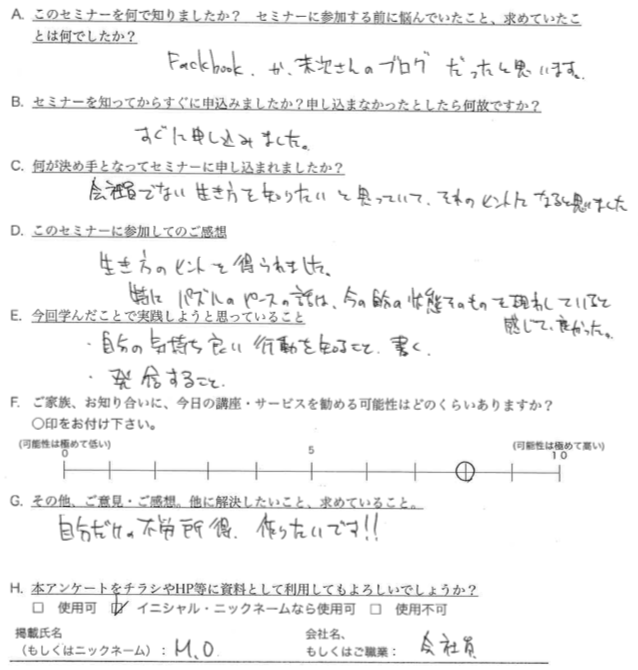 A. このセミナーを何で知りましたか？ セミナーに参加する前に悩んでいたこと、求めていたこ
とは何でしたか？
Fackbook. か、末次さんのブログ だったと思います。
B. セミナーを知ってからすぐに申込みましたか？申し込まなかったとしたら何故ですか？
すぐに申し込みました。
C. 何が決め手となってセミナーに申し込まれましたか？
会社員でない生き方を知りたいと思っていて、それのヒントになると思いました
D. このセミナーに参加してのご感想
生き方のヒントを得られました。
特に パズルのピースの話は、今の自分の状態そのものを現わしていると
感じて、良かった。
E. 今回学んだことで実践しようと思っていること
・自分の気持ち良い行動を知ること、書く、
・発信すること、
F. ご家族、お知り合いに、今日の講座・サービスを勧める可能性はどのくらいありますか？
〇印をお付け下さい。
(可能性は極めて低い) (可能性は極めて高い)
0 5 10
G. その他、ご意見・ご感想。他に解決したいこと、求めていること。
自分だけの不労所得、作りたいです!!
H. 本アンケートをチラシやHP等に資料として利用してもよろしいでしょうか？
□ 使用可 ☑ イニシャル・ニックネームなら使用可 □ 使用不可
掲載氏名 会社名、
（もしくはニックネーム）： M.O. もしくはご職業： 会社員